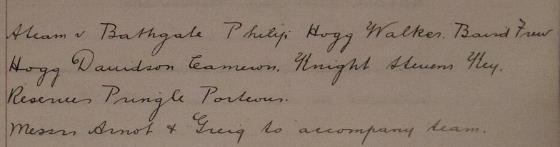 A team v Bathgate Philip Hogg Walker. Baird Frew
Hogg Davidson Cameron. Knight Stevens Key.
Reserves Pringle Porteous.
Messrs Arnot & Greig to accompany team.